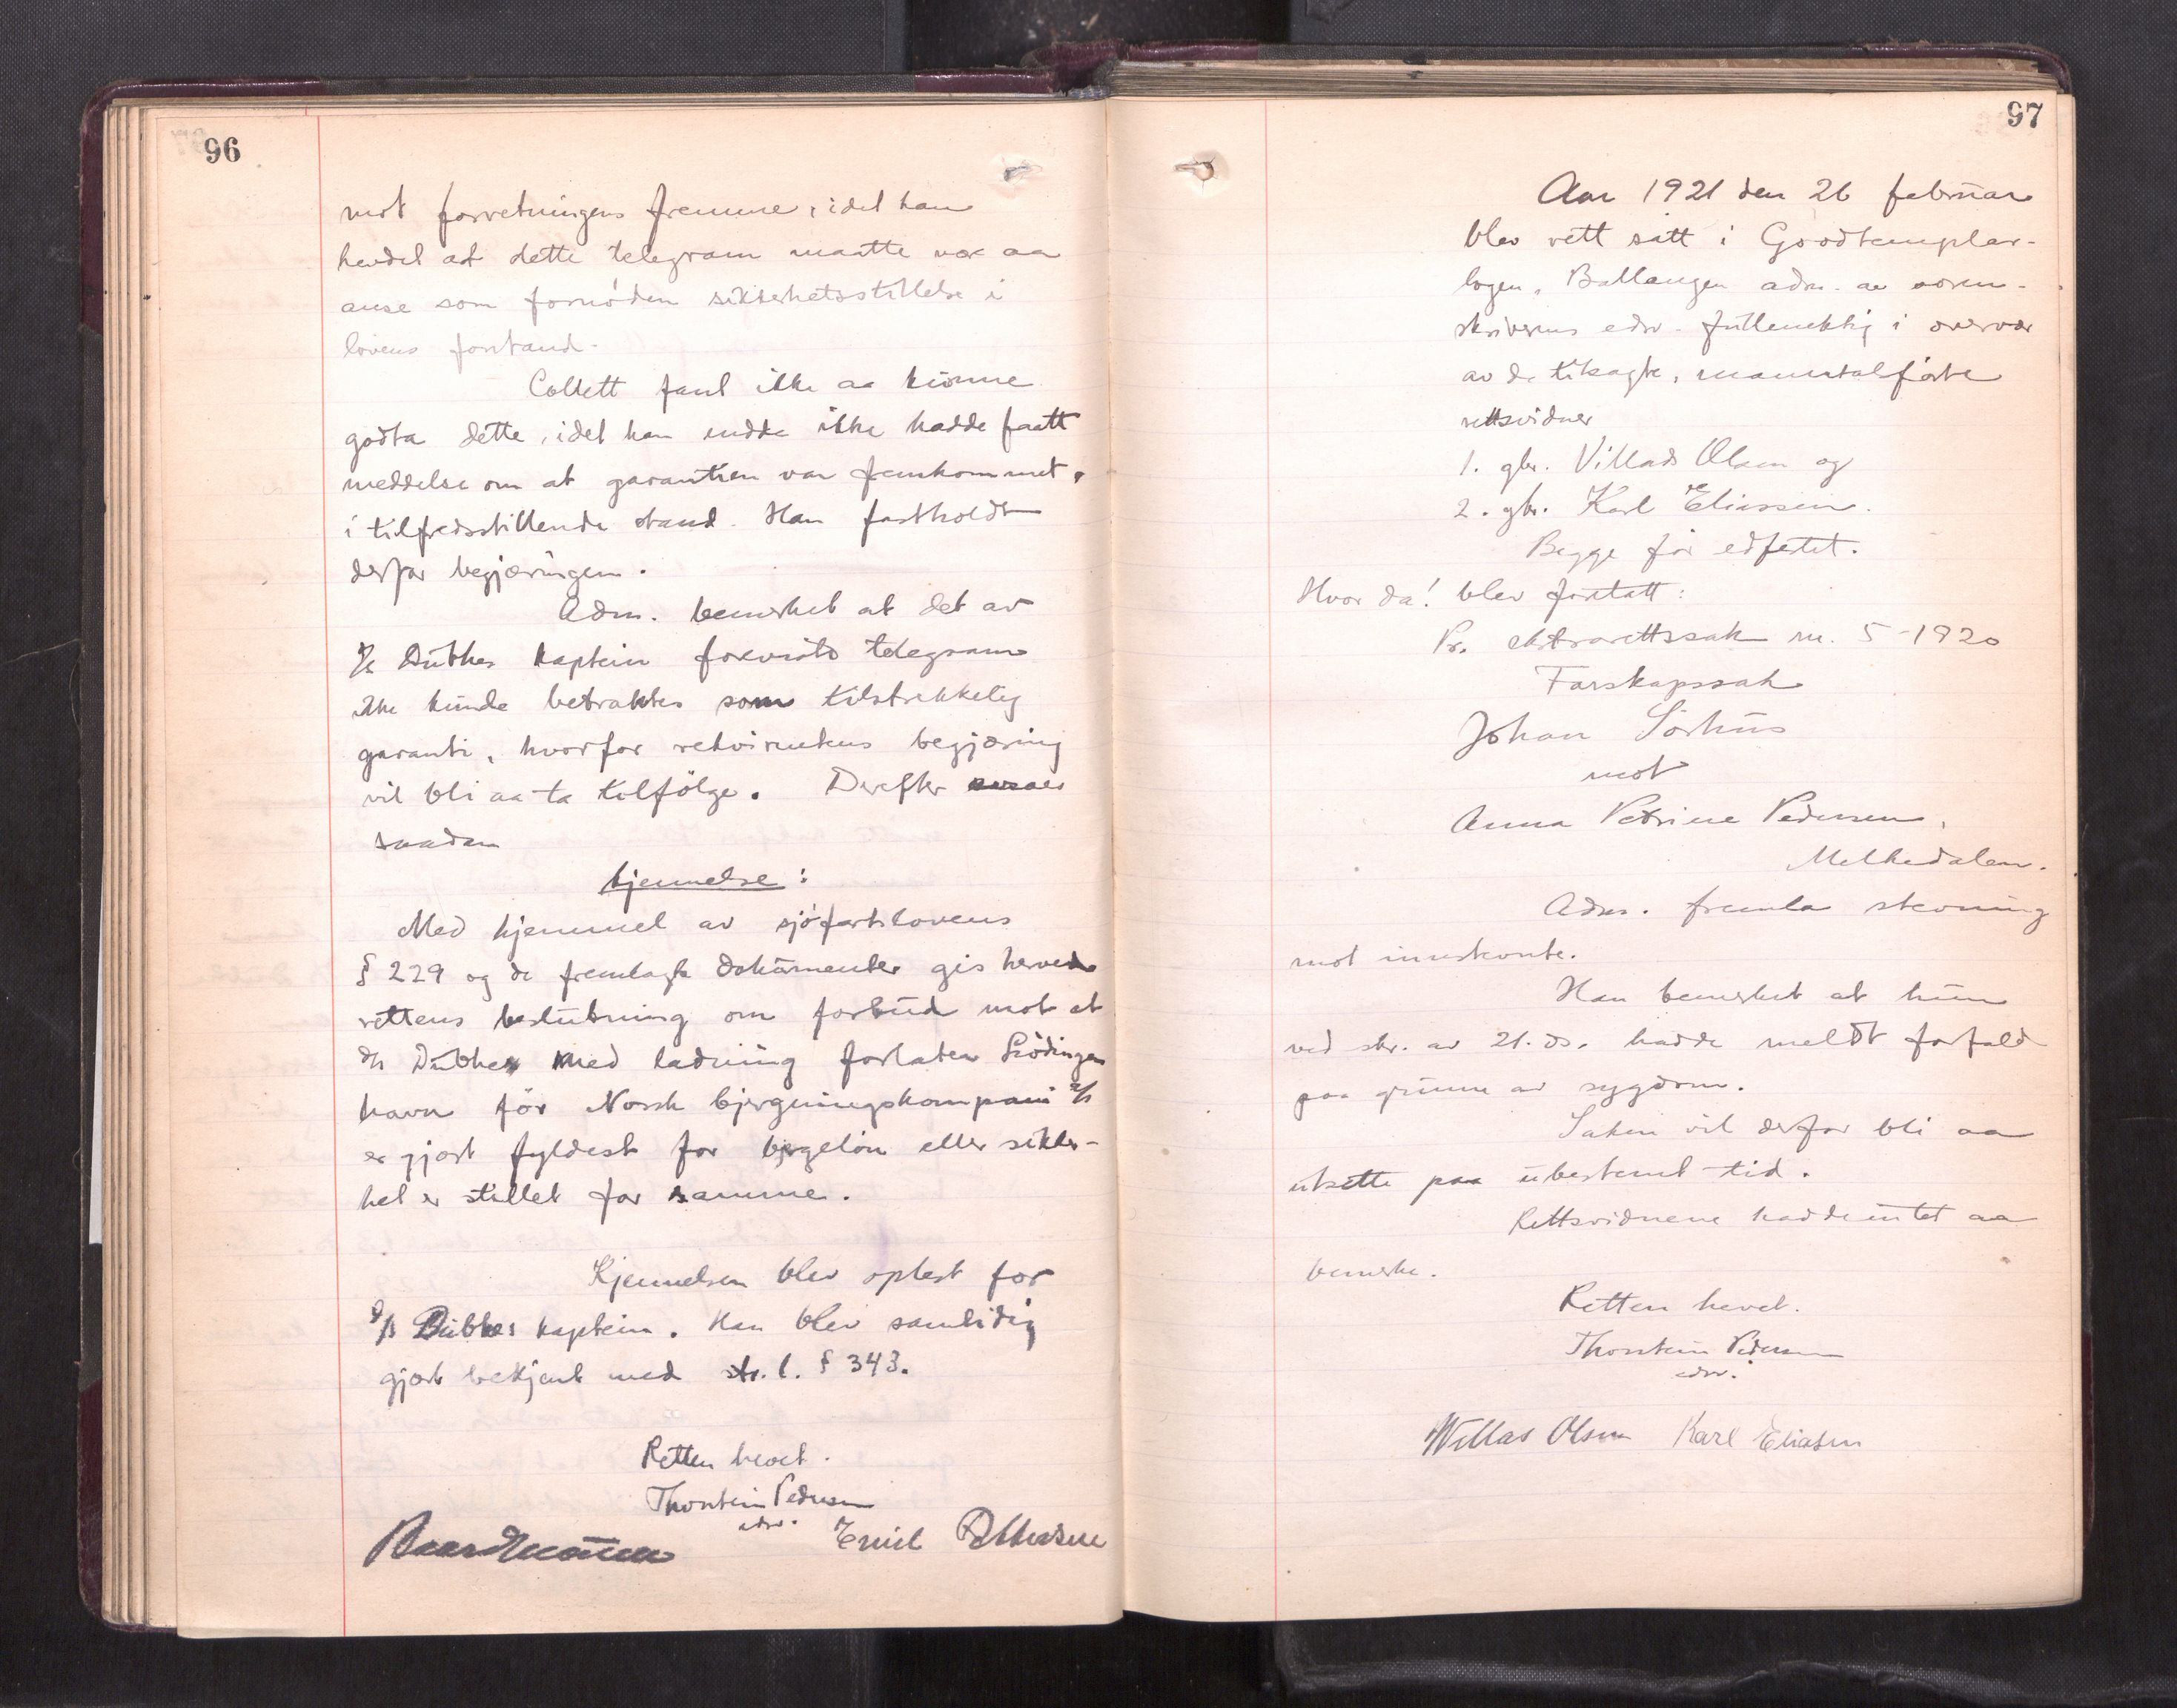 96
mot forretningens fremme, idet han
hevdet at dette telegram maatte vær aa
anse som fornöden sikkerhetsstillelse i
lovens forstand.
Collett fant ikke aa kunne
godta dette, idet han endda ikke hadde faatt
meddelse om at garantien var fremkommet,
i tilfredsstillende stand. Han fastholdt
derfor begjæringen.
Adm. bemerket at det av
D/s Dubhes kaptein foreviste telegram
ikke kunde betraktes som tilstrekkelig
garanti, hvorfor rekvirentens begjæring
vil bli aa ta tilfölge. Derefter
saadan
kjennelse:
Med hjemmel av sjöfartslovens
§ 229 og de fremlagte dokumenter gis herved
rettens beslutning om forbud mot at
d/s Dubhe med ladning forlater Lödingen
havn för Norsk bjergningskompani a/s
er gjort fyldest for bjergelön eller sikker-
het er stillet for samme.
Kjennelsen blev oplest for
d/s Dubhes kaptein. Han blev samtidig
gjort bekjent med str. l. § 343.
Retten hevet.
Thorstein Pedersen
edsv.
Emil Pettersen
97
Aar 1921 den 26 februar
blev rett satt i Goodtemplar-
logen, Ballangen adm. av soren-
skriverens edsv. fullmektig i overvær
av de tilsagte, manntalförte
rettsvidner
1. gbr. Villads Olsen og
2. gbr. Karl Eliassen.
Begge för edfestet.
Hvor da! blev foretatt:
Pr. ekstrarettssak nr. 5-1920
Farskapssak
Johan Sörhus
mot
Anna Petrine Pedersen,
Melkedalen.
Adm. fremla stevning
mot innstevnte.
Han bemerket at hun
ved skr. av 21. ds. hadde meldt forfald
paa grunn av sygdom.
Saken vil derfor bli aa
utsette paa ubestemt tid.
Rettsvidnene hadde intet aa
bemerke.
Retten hevet.
Thorstein Pedersen
edsv.
Willas Olsen Karl Eliassen